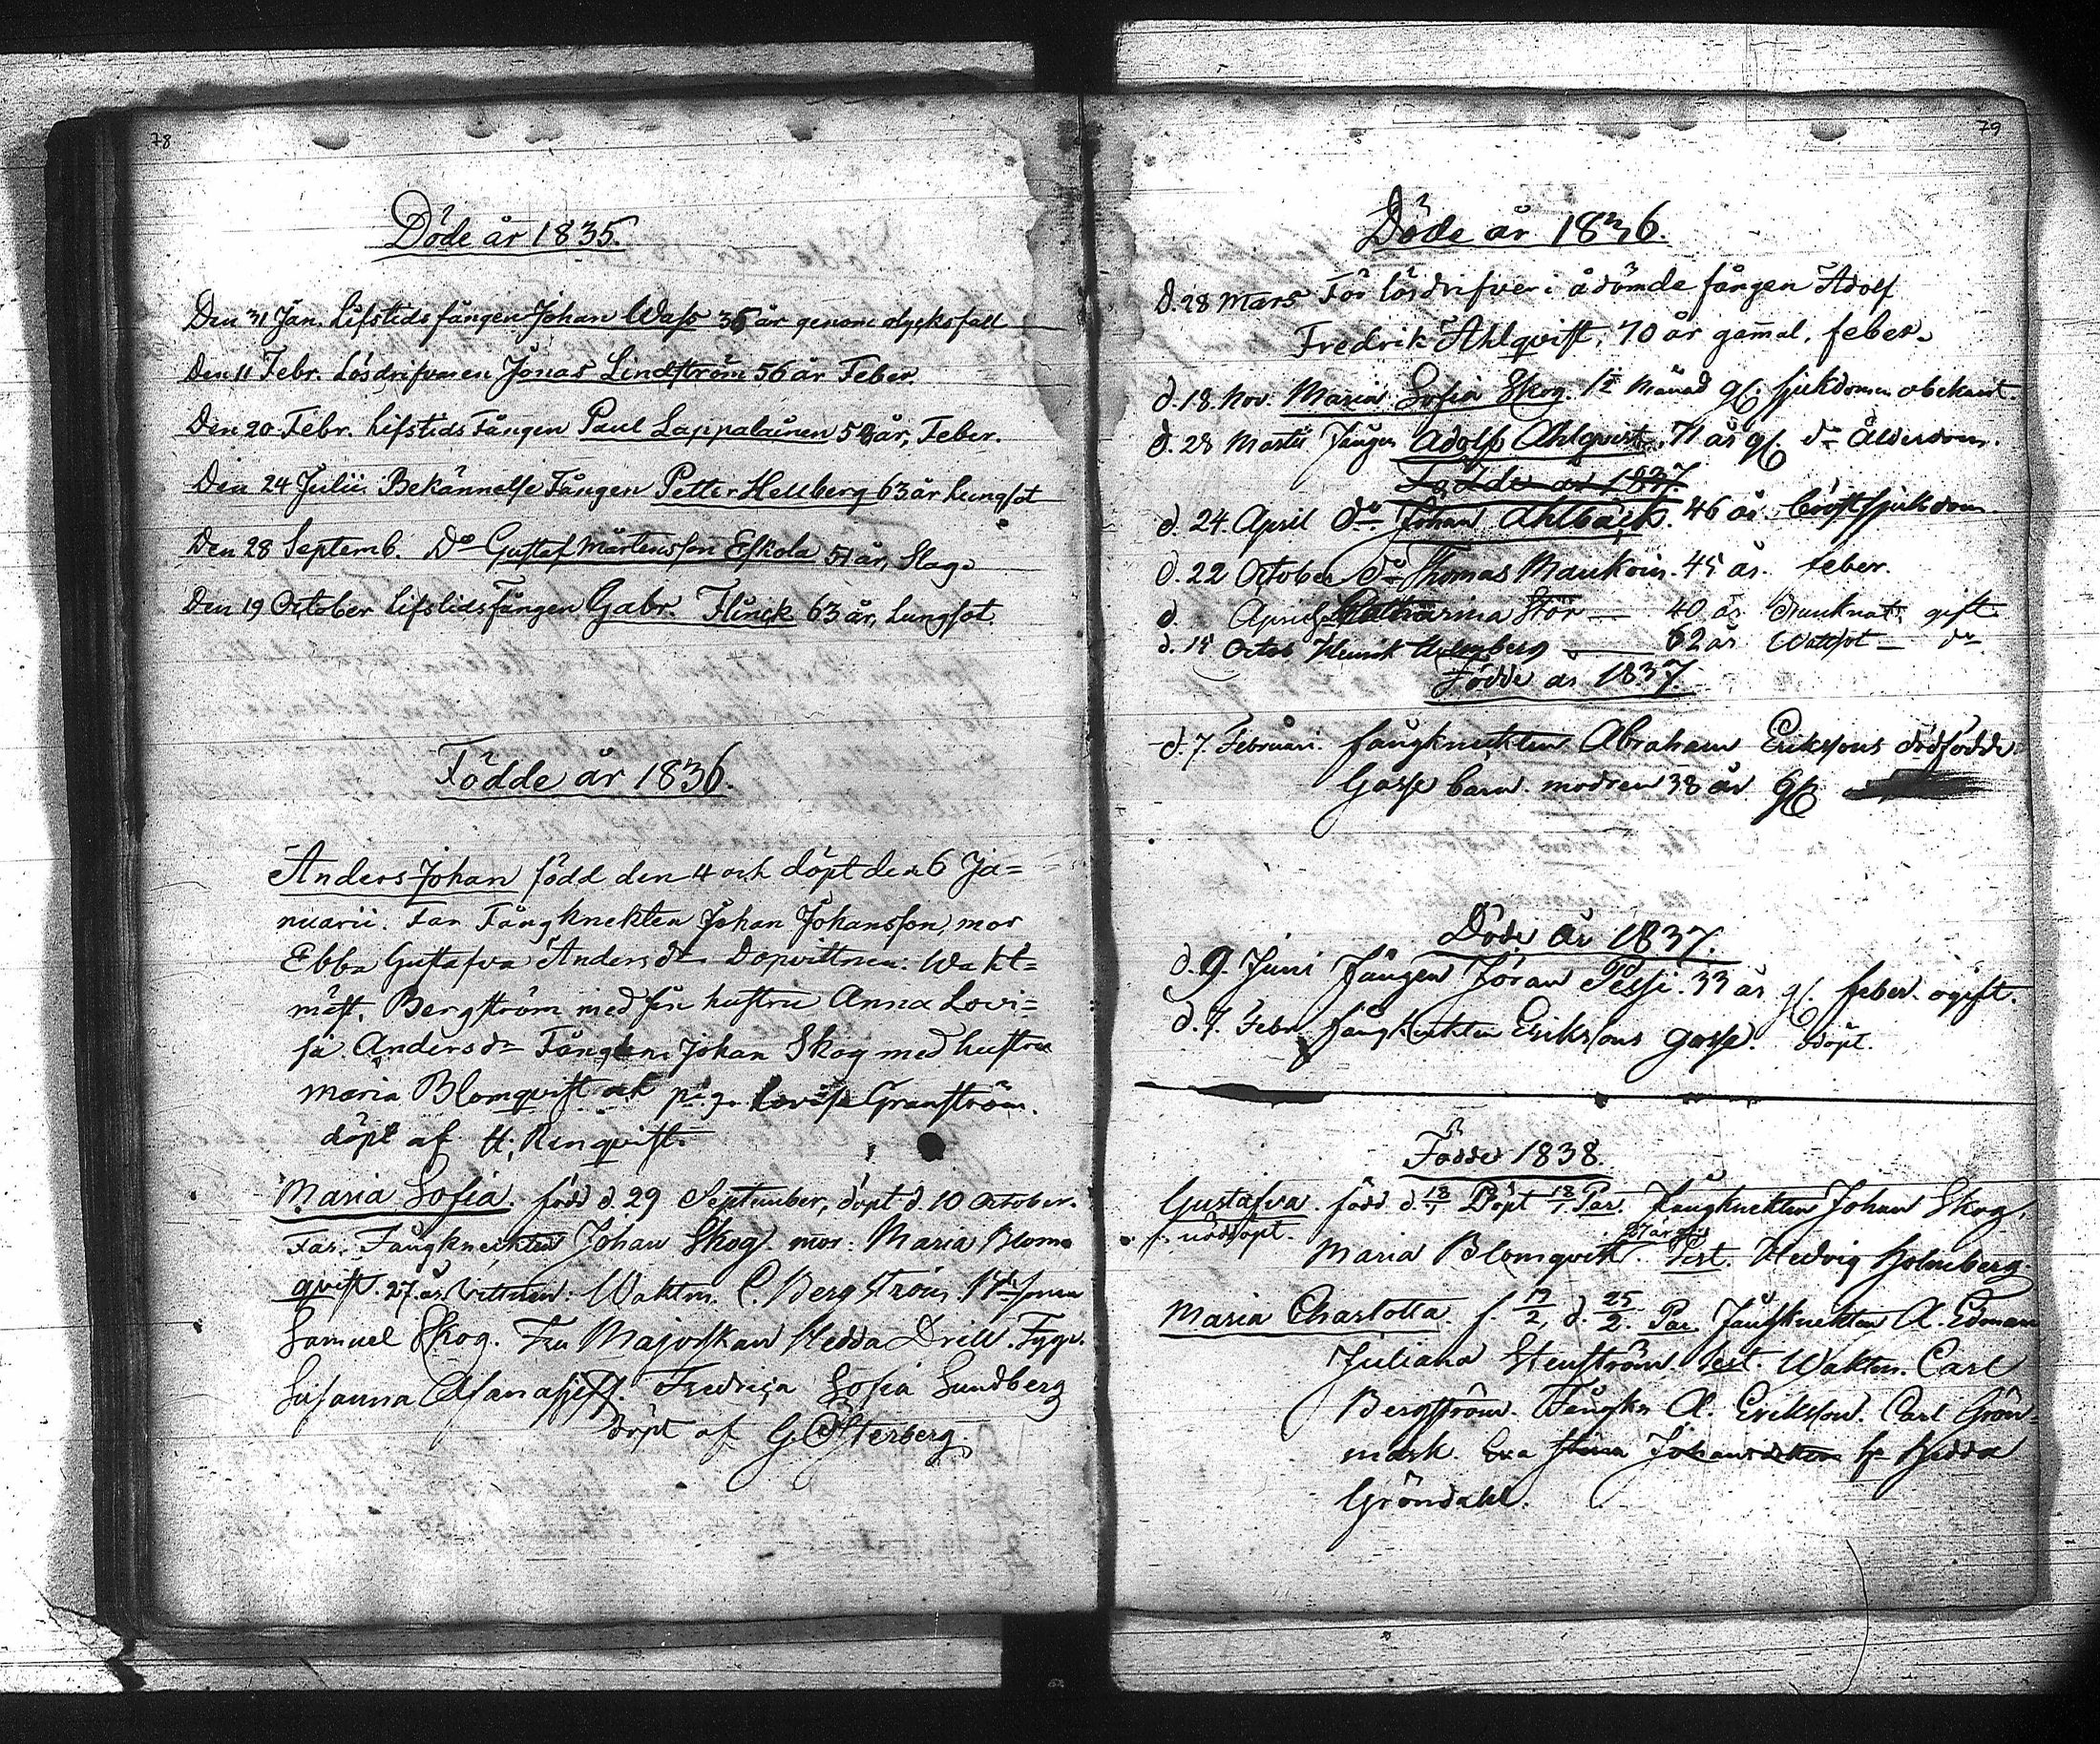 78
Döde år 1835.
Den 31 Jan. Lifstids fången Johan Wass 36 år genom olycksfall
Den 11 Febr. Lösdrifvaren Jonas Lindström 56 år Feber.
Den 20 Febr. Lifstids Fången Paul Lappalainen 58 år, Feber.
Den 24 Julii Bekännelse Fången Petter Hellberg 63 år Lungsot
Den 28 Septemb. Do Gustaf Mårtensson Eskola 51 år, Slag.
Den 19 October Lifstidsfången Gabr. Flinck 63 år, Lungsot.
Födde år 1836.
Anders Johan född den 4 och döpt den 6 Ja=
nuarii. Far Fångknekten Johan Johansson, mor
Ebba Gustafva Andersdr. Dopvittnen: Wakt=
mäst. Bergström med sin hustru Anna Lovi=
sa Andersdr Fångkn. Johan Skog med hustru
Maria Blomqvist och pig. Lovisa Granström.
döpt af H. Renqvist.
Maria Sofia. född d. 29 September, döpt d. 10 October.
Far. Fångknekten Johan Skog. mor: Maria Blom=
qvist. 27 år. Vittnen: Waktm. C. Bergström.
Samuel Skog. Fru Majorskan Hedda Drill.
Susanna Afanasjeff. Fredrica Sofia Sundberg
döpt af G. Österberg.
79
Döde år 1836.
D. 28 Mars För lösdrifveri ådömde fången Adolf
Fredrik Ahlqvist, 70 år gamal. feber.
d. 18. Nov. Maria Sofia Skog. 1½ Månad gl. sjukdomen obekant.
d. 28 Martii Fången Adolf Ahlqvist. 71 år gl. do Ålderdom.
Födde år 1837
d. 24. April do Johan Ahlbäck. 46 år. bröstsjukdom.
d. 22 October do Thomas Maukoin. 45 år. feber.
d. April Catharina Stör — 40 år Drunknat. gift.
d. 15 Octob Henrik Holmberg — 62 år Wattsot — do
Födde år 1837.
d. 7. Februari. fångknekten Abraham Erikssons dödfödde
Gosse barn. modren 38 år gl.
Döde år 1837.
d. 9. Juni Fången Jöran Pessi. 33 år gl. feber. ogift.
d. 7. Febr. fångknekten Erikssons gosse. odöpt.
Födde 1838
Gustafva född d. 18/1 Döpt 18/1. Par. Fångknekten Johan Skog,
nöddöpt.
Maria Blomqvist. Test. Hedvig Holmberg.
Maria Charlotta. f. 17/2, d. 25/2. Par. Fångknekten A. Edman
Juliana Stenström. Test. Waktm. Carl
Bergström. Fångkn A. Eriksson. Carl Grön=
mark. Eva Stina Johansdotter Hedda
Gröndahl.